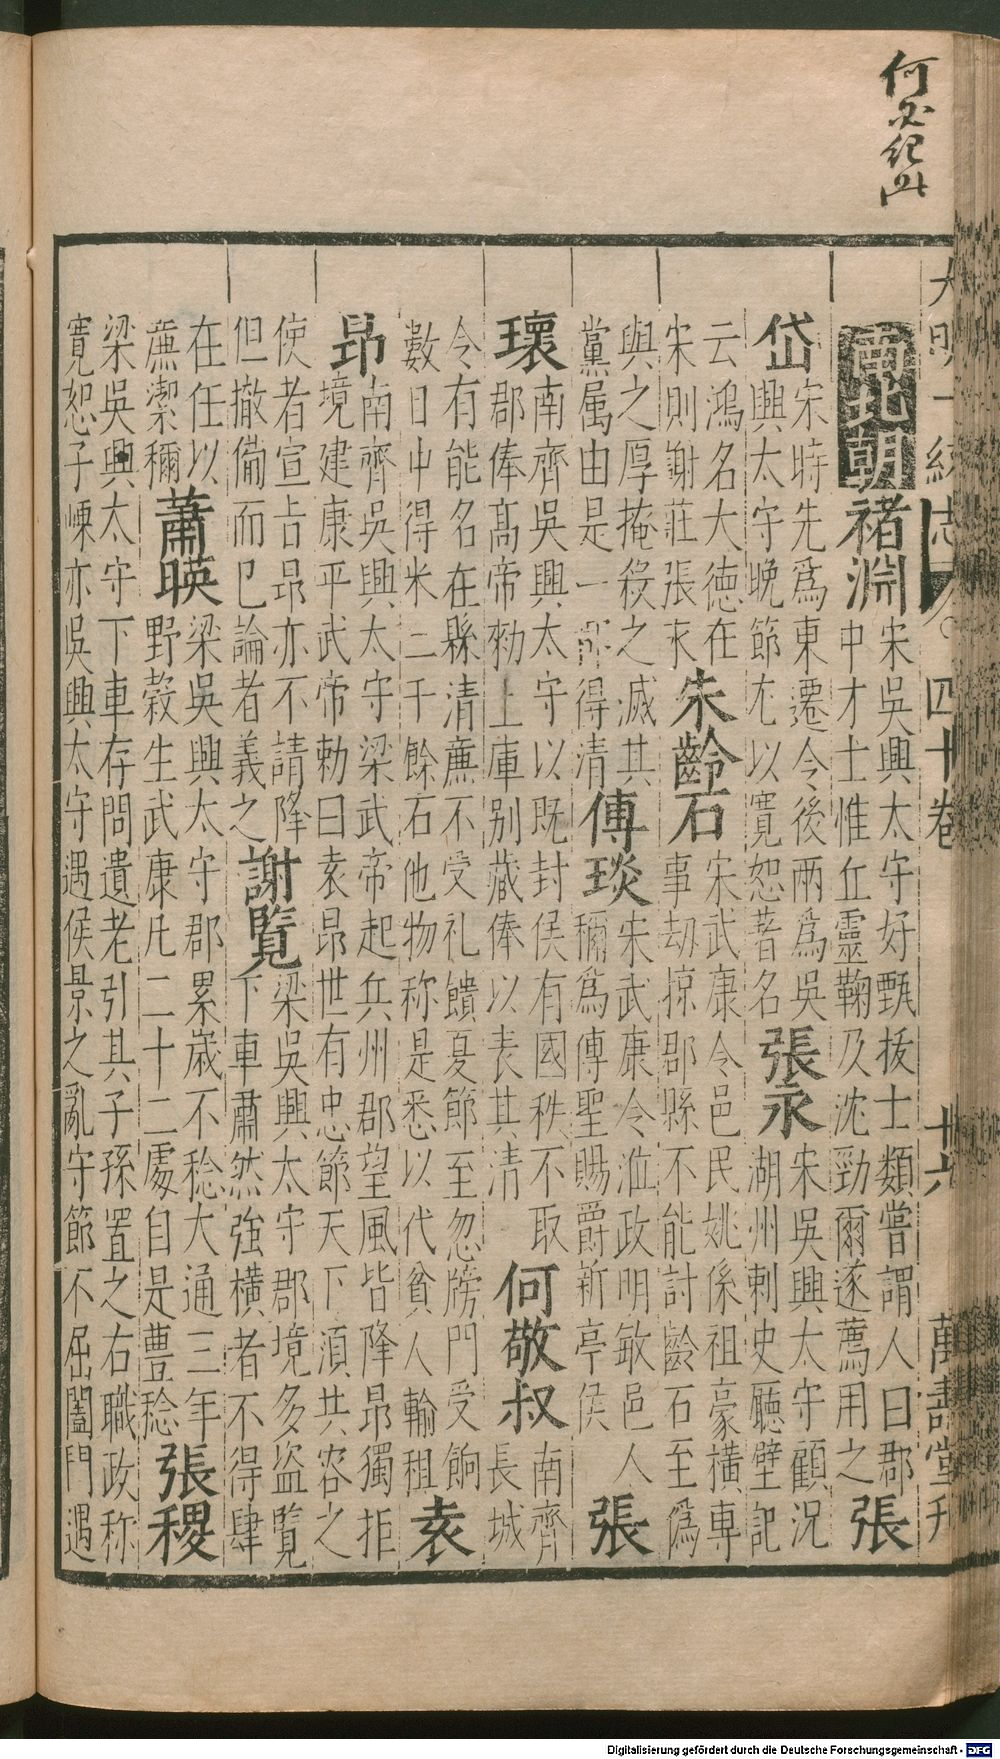 何必紀此
大明一統志 四十卷 廿六 萬壽堂刋
南北朝 褚淵 宋吳興太守好甄拔士類嘗謂人曰郡
中才士惟丘靈鞠及沈勁爾遂薦用之 張
岱 宋時先爲東遷令後兩爲吳
興太守晚節尤以寛恕著名 張永 宋吳興太守顧況
湖州刺史廳壁記
云鴻名大德在
宋則謝莊張永 朱齡石 宋武康令邑民姚係祖豪橫專
事刼掠郡縣不能討齡石至爲
與之厚掩殺之滅其
黨属由是一郡得清 傅琰 宋武康令涖政明敏邑人
稱爲傅聖賜爵新亭侯 張
瓌 南齊吳興太守以既封侯有國秩不取
郡俸髙帝勑上庫别藏俸以表其清 何敬叔 南齊
長城
令有能名在縣清亷不受礼饋夏節至忽牓門受餉
數日中得米二千餘石他物称是悉以代貧人輸租 袁
昂 南齊吳興太守梁武帝起兵州郡望風皆降昂獨拒
境建康平武帝勅曰袁昂世有忠節天下須共容之
使者宣旨昂亦不請降
但撤備而已論者義之 謝覽 梁吳興太守郡境多盗覽
下車肅然強橫者不得肆
在任以
亷潔稱 蕭暎 梁吳興太守郡累歳不稔大通三年
野穀生武康凡二十二處自是豐稔 張稷
梁吳興太守下車存問遺老引其子孫置之右職政称
寛恕子嵊亦吳興太守遇侯景之亂守節不屈闔門遇
Digitalisierung gefördert durch die Deutsche Forschungsgemeinschaft - DFG